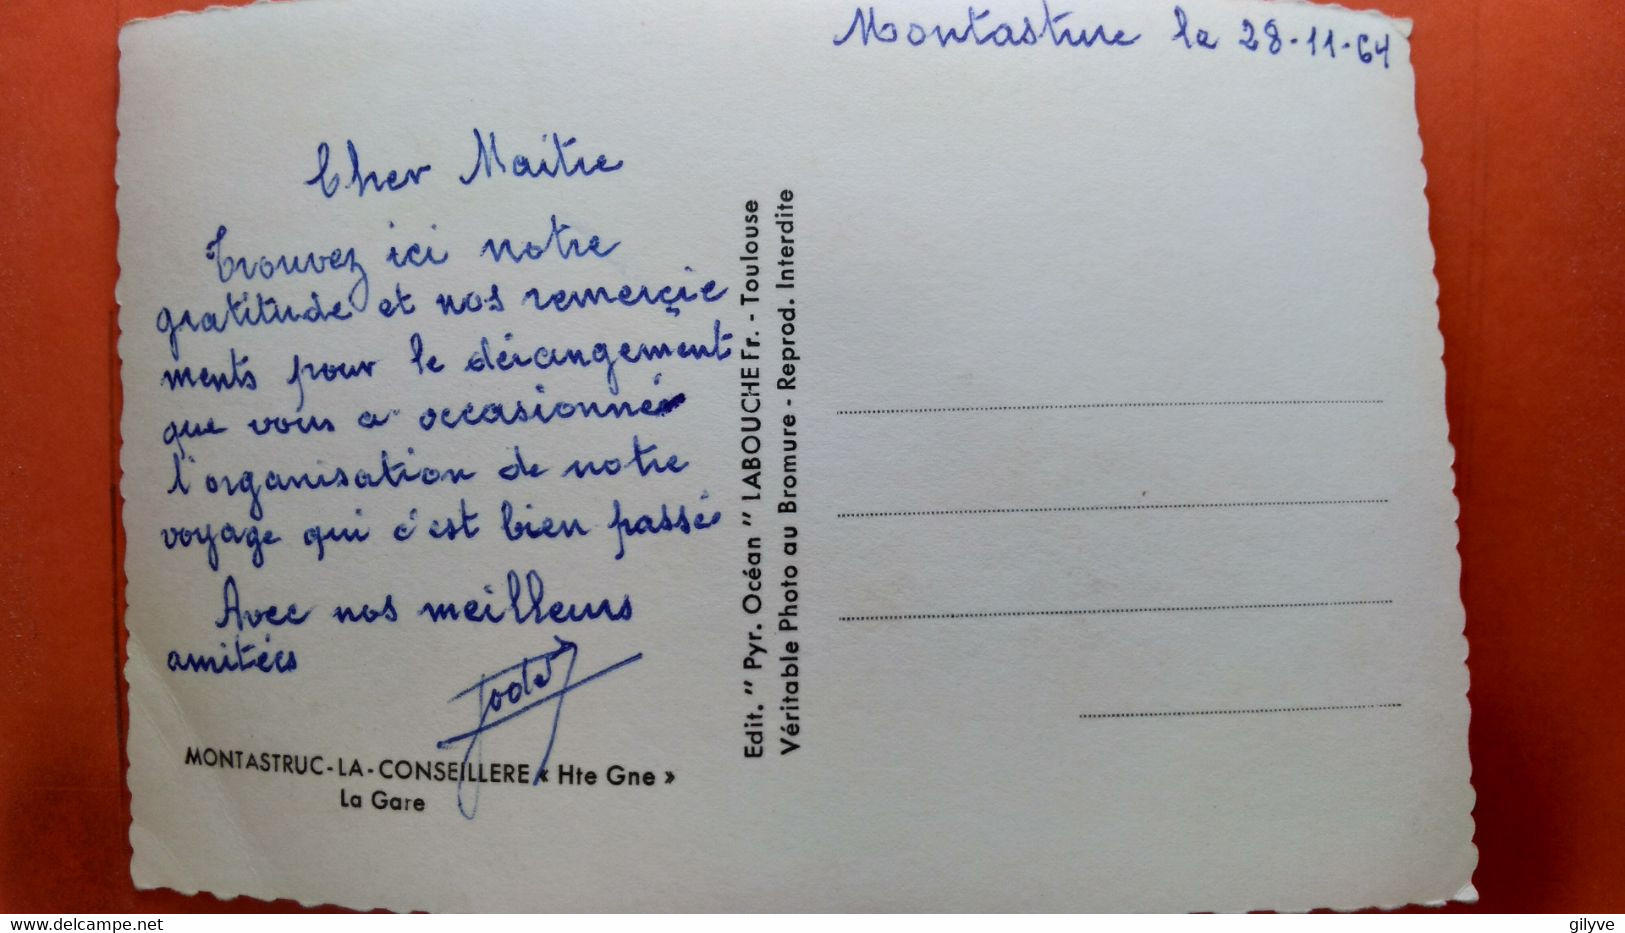 Montastruc le 28-11-64
Cher Maitre
Trouvez ici notre
gratitude et nos remerçie
ments pour le dérangement
que vous a occasionné
l'organisation de notre
voyage qui c'est bien passé
Avec nos meilleurs
amitiés
MONTASTRUC-LA-CONSEILLERE « Hte Gne »
La Gare
Edit. " Pyr. Océan " LABOUCHE Fr. - Toulouse
Véritable Photo au Bromure - Reprod. Interdite
www.delcampe.net
gilyve